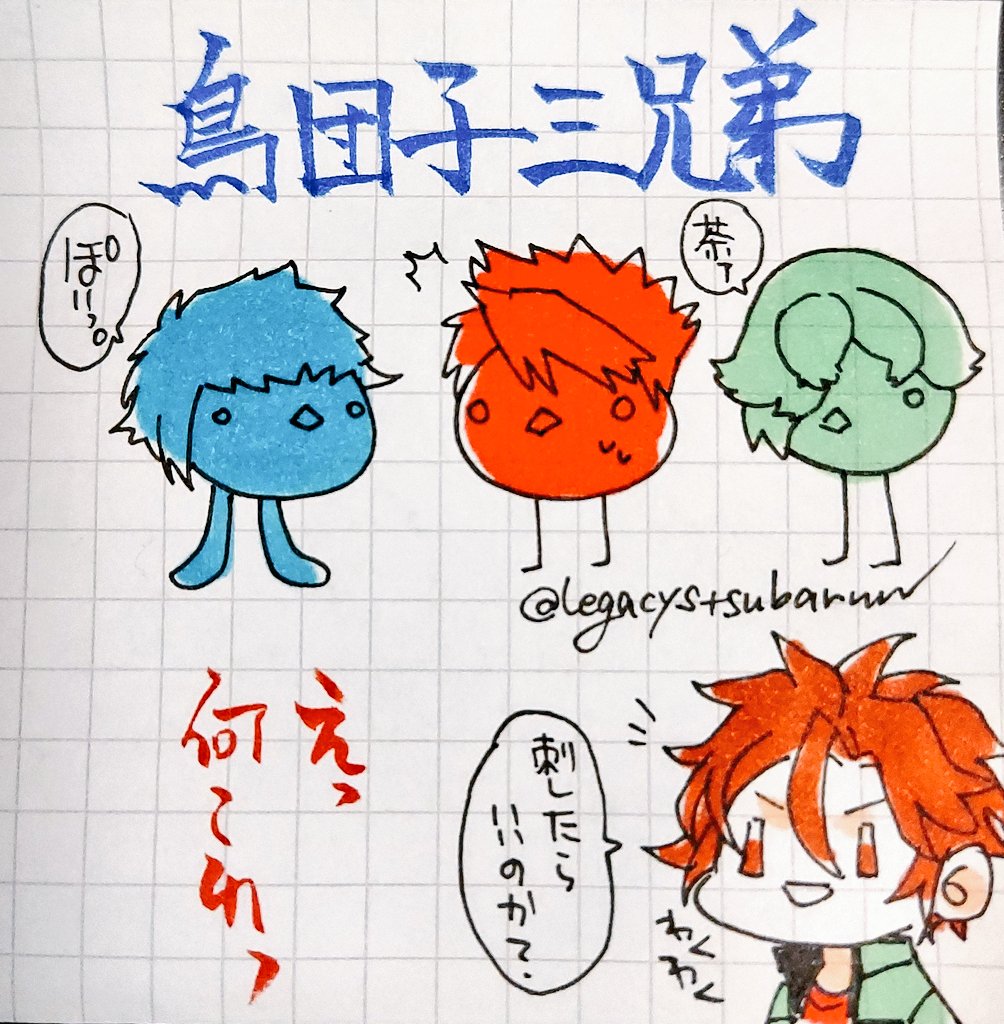 鳥団子三兄弟
ぽいっ。
茶了
@legacys+subarun
えっ
何これっ
刺したら
いいのか?
わくわく